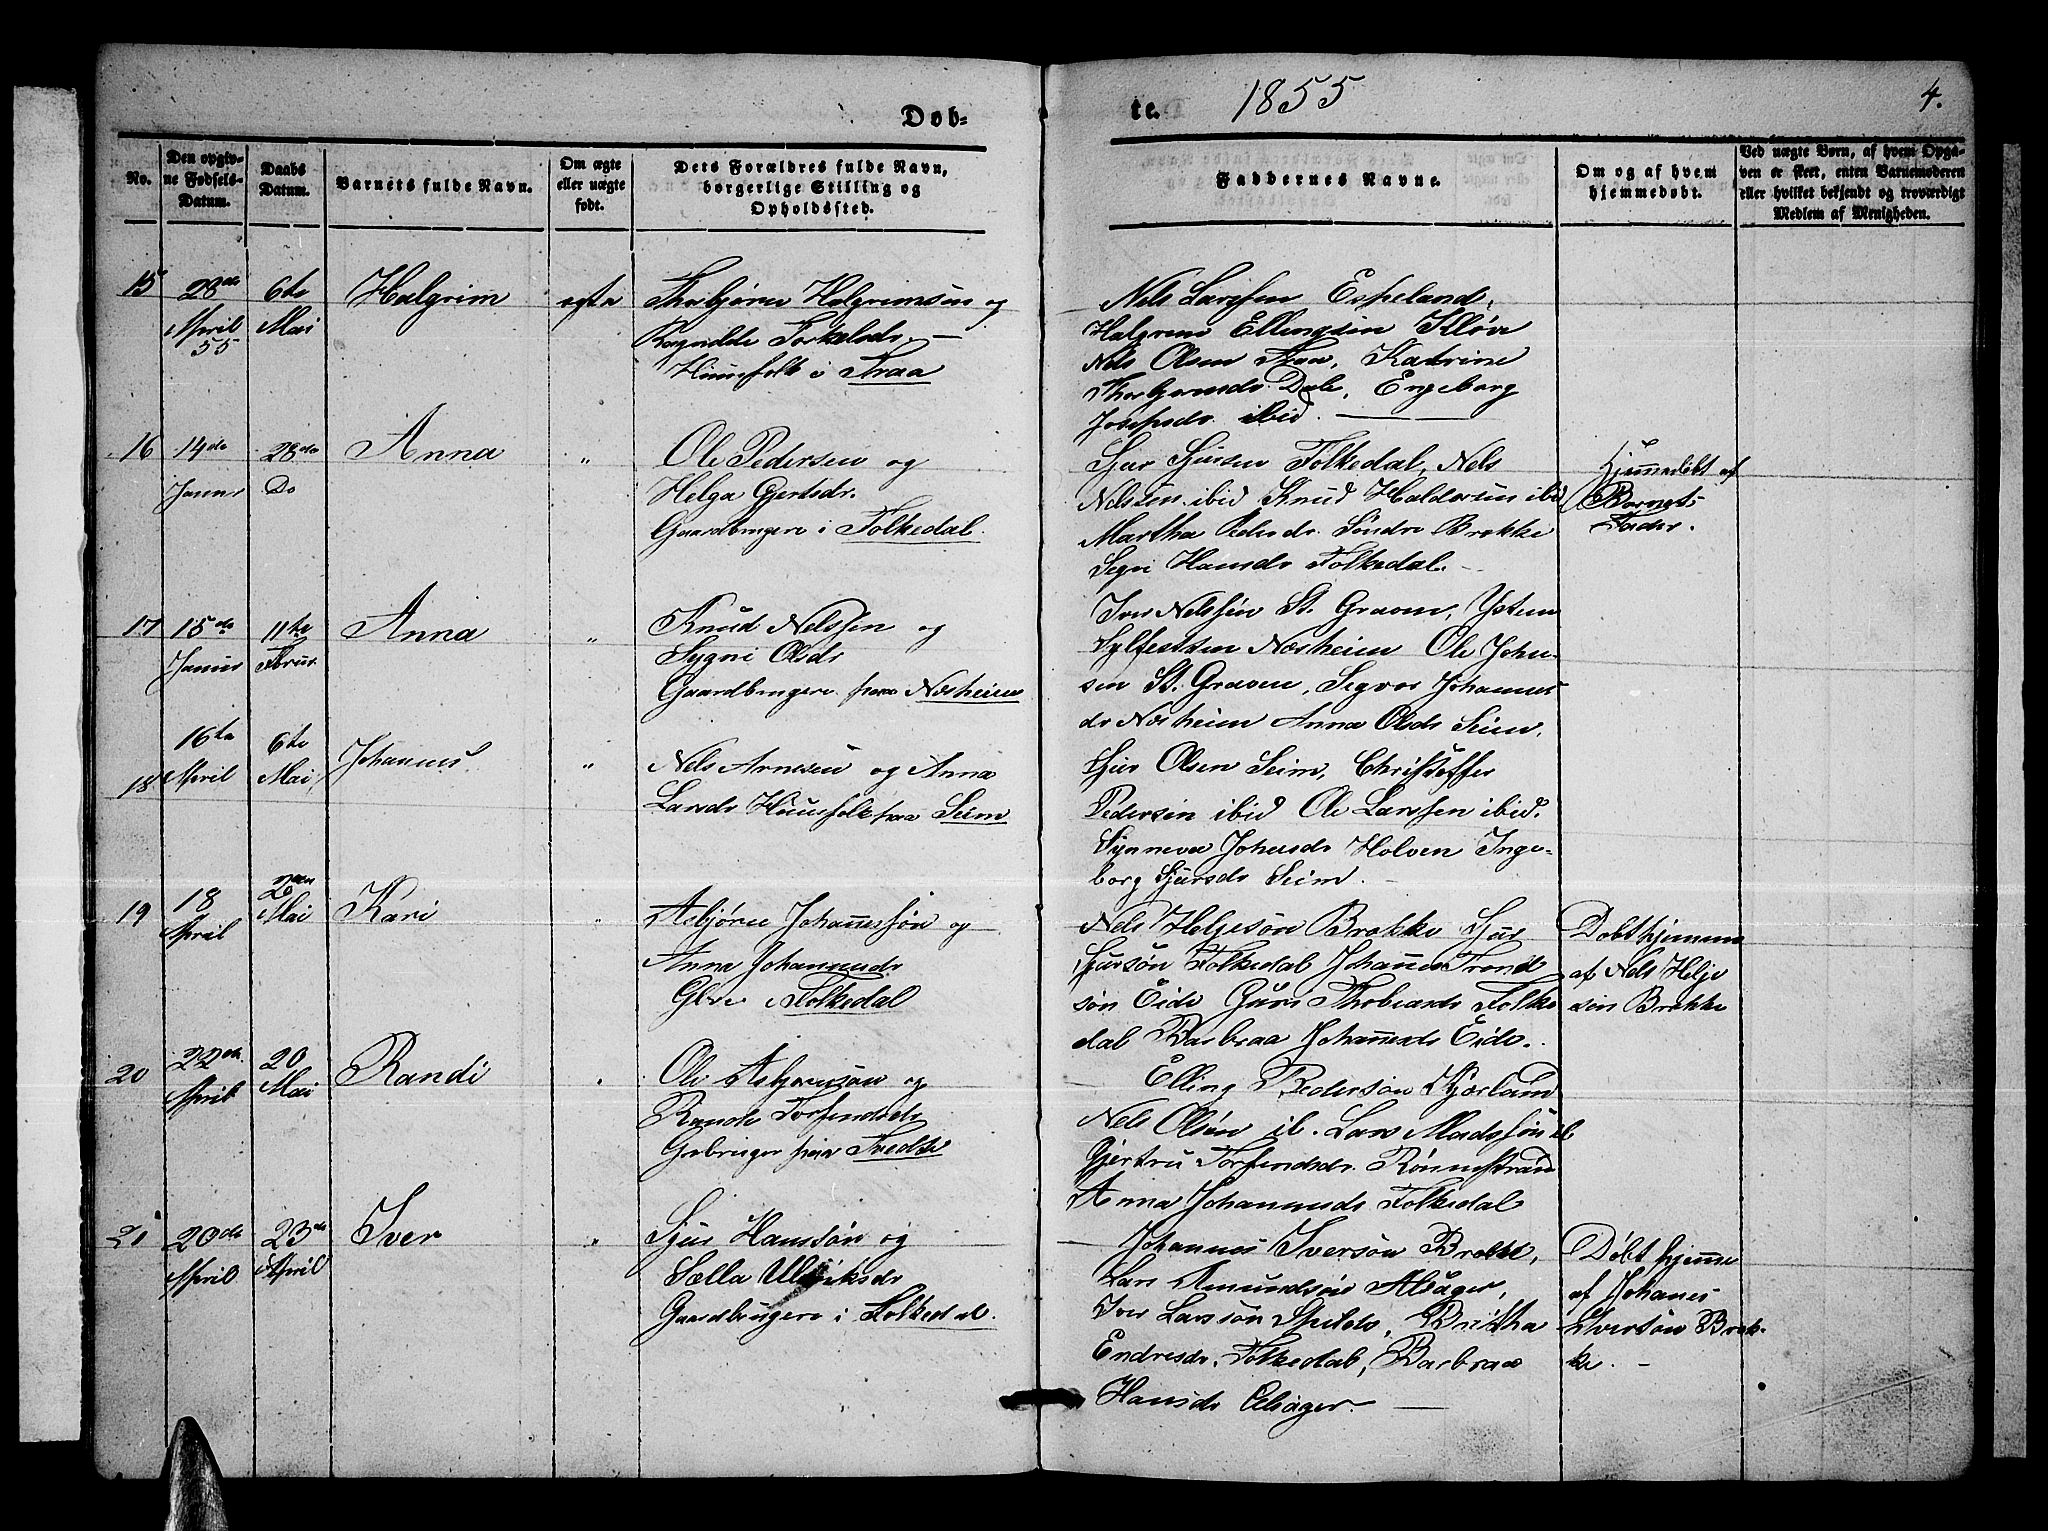 Døb-
te. 1855 4.
No.
Den opgiv-
ne Fødsels-
Datum.
Daabs
Datum.
Barnets fulde Navn.
Om ægte
eller uægte
født.
Dets Forældres fulde Navn,
borgerlige Stilling og
Opholdssted.
Faddernes Navne.
Om og af hvem
hjemmedøbt.
Ved uægte Børn, af hvem Opga-
ven er skeet, enten Barnemoderen
eller hvilket bekjendt og troværdigt
Medlem af Menigheden.
15
28de
April
55
6te
Mai
Halgrim
ægta
Halgrimsøn og
Torkelsdr.
i Traa
Nels Larssen Espeland,
Ellingsen Kløve
Nels Olsen Katrine
Dale, Engeborg
Josepsdr ibid.
16
14de
Janr
28de
Do
Anna
"
Ole Pedersen og
Helga Gjertsdr.
Gaardbrugere i Folkedal.
Sjur Sjursen Folkedal, Nels
Nelssen ibid Knud Haldorsen ibid
Martha Pedersdr. Søndre Brække
Segri Hansdr Folkedal.
Hjemmedøbt af
Barnets
Fader.
17
15de
11te
Anna
"
Knud Nelssen og
Sygni Olsdr
Gaardbrugere paa Næsheim
Iver Nelssen St. Graven, Ysten
Sylfestsen Næsheim Ole Johan-
sen St. Graven, Johannes
dr Næsheim Anna Olsdr Seim.
18
16te
April
6te
Mai
Johannes
"
Nels Arnesen og Anna
Larsdr Huusfolk paa Seim
Sjur Olsen Seim, Christoffer
Pedersen ibid Ole Larssen ibid.
Synneva Holven Inge-
borg Sjursdr Seim.
19
18
April
Mai
Kari
"
Asbjørn Johannessøn og
Anna Johannesdr
i Folkedal
Nels Helgesøn Brække Sjur
Sjursøn Folkedal Johannes Trond
søn Eide Guro Folke
dal Barbraa Johannesdr Eide.
Døbt hjemme
af Nels Helje
søn Brække
20
22de
April
20
Mai
Randi
"
Ole og
Torfendsdr
paa Tvedte
Elling Pedersøn Kjærland
Nels Olsøn ib. Lars Madssøn ib
Gjertru Torfendsdr. Rønnestrand
Anna Johannesdr Folkedal
21
20de
April
23de
April
Iver
"
Sjur Hanssøn og
Sælla Ulriksdr
Gaardbrugere i Folkedal.
Johannes Iversøn Brække,
Lars Amundsøn Alsåger,
Iver Larssøn Spilde, Britha
Endresdr. Folkedal, Barbraa
Hansdr Alsåger.
Døbt hjemme
af Johanes
Iversøn Bræk-
ke.